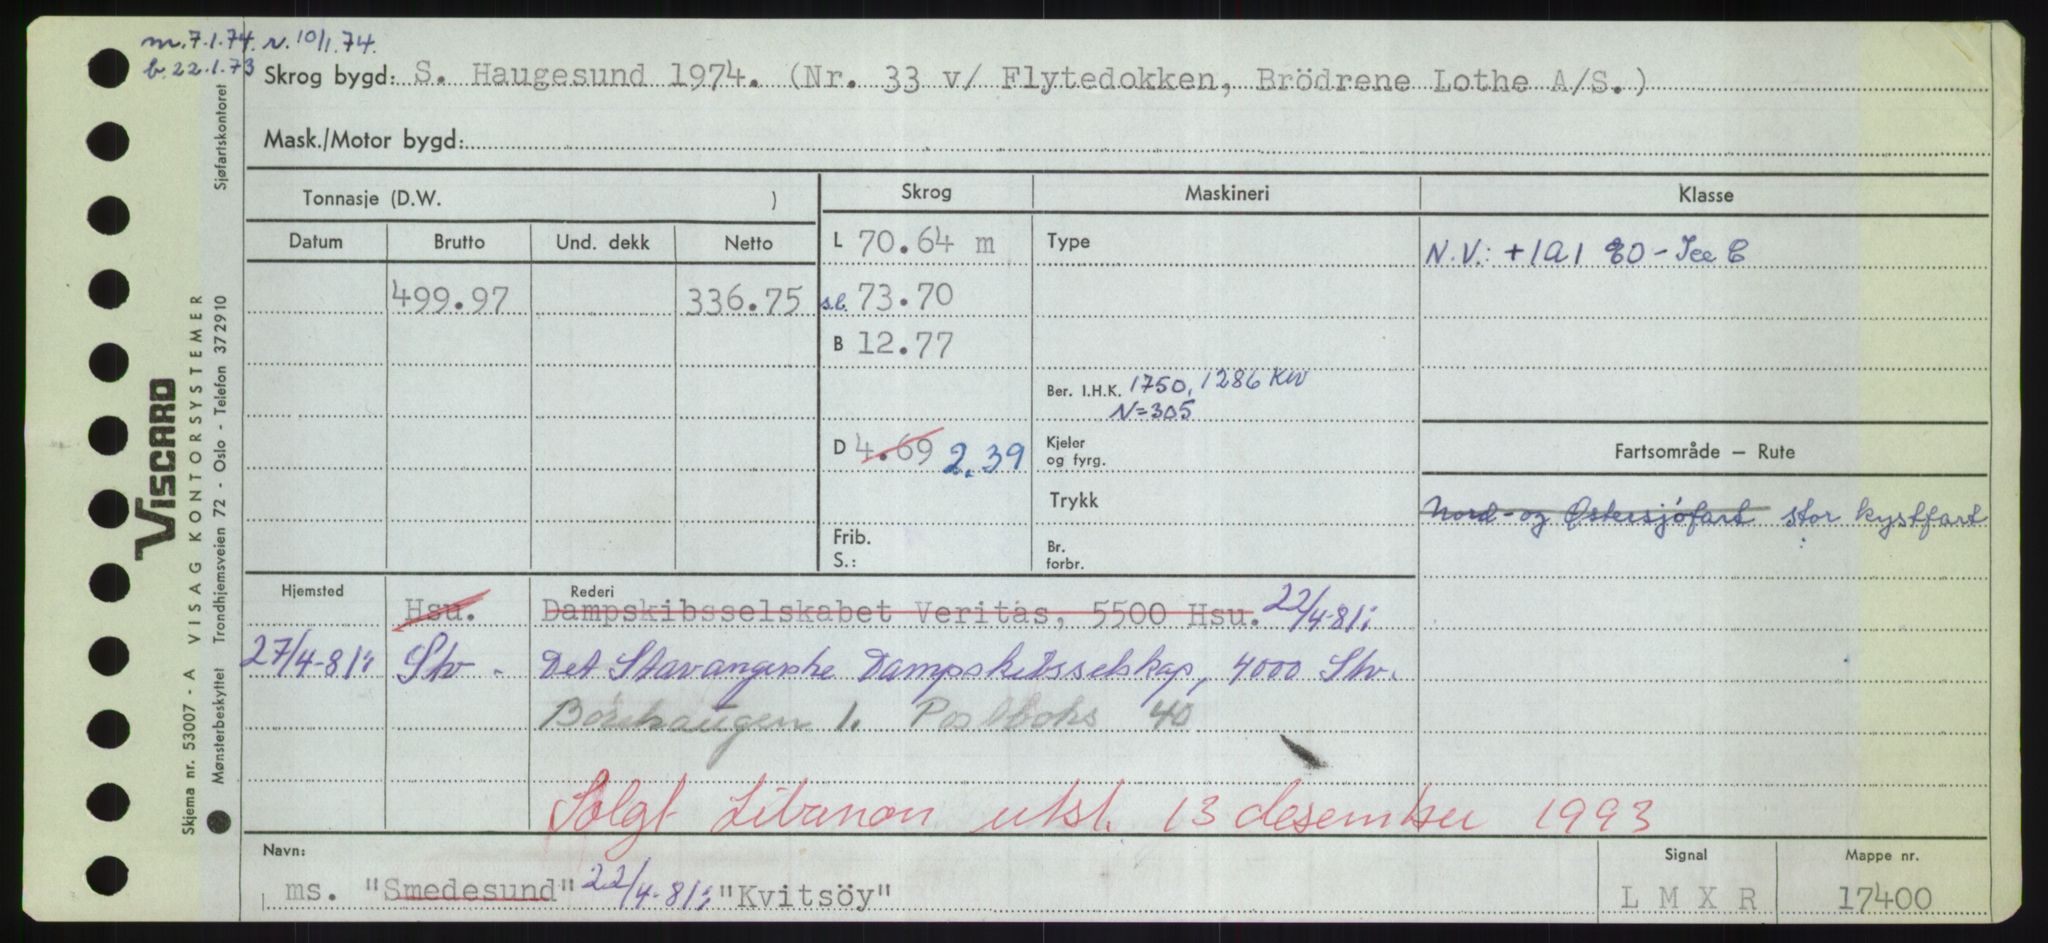 m. 7.1.74. v. 10/1.74.
b. 22.1.73
Skrog bygd: S. Haugesund 1974. (Nr. 33 v/ Flytedokken, Brödrene Lothe A/S.)
Mask./Motor bygd:
Tonnasje (D.W. )
Skrog
Maskineri
Klasse
Datum Brutto Und. dekk Netto
L 70.64 m
Type
N.V.: +1A1 EO - Ice C
499.97 336.75
s.l. 73.70
B 12.77
Ber. I.H.K. 1750, 1286 KW
N=305
D 4.69 2.39
Kjeler
og fyrg.
Fartsområde – Rute
Trykk
Nord- og Østersjöfart stor kystfart
Frib.
S.:
Br.
forbr.
Hjemsted
Rederi
Hsu. Dampskibsselskabet Veritas, 5500 Hsu. 22/4-81:
27/4-81: Stv - Det Stavangerske Dampskibsselskap, 4000 Stv.
Börehaugen 1. Postboks 40
Solgt Libanon utsl. 13 desember 1993
Navn:
Signal
Mappe nr.
ms. "Smedesund" 22/4-81: "Kvitsöy"
L M X R
17400
Sjøfartskontoret
VISCARD
VISAG KONTORSYSTEMER
Skjema nr. 53007 - A
Mønsterbeskyttet Trondhjemsveien 72 - Oslo - Telefon 372910